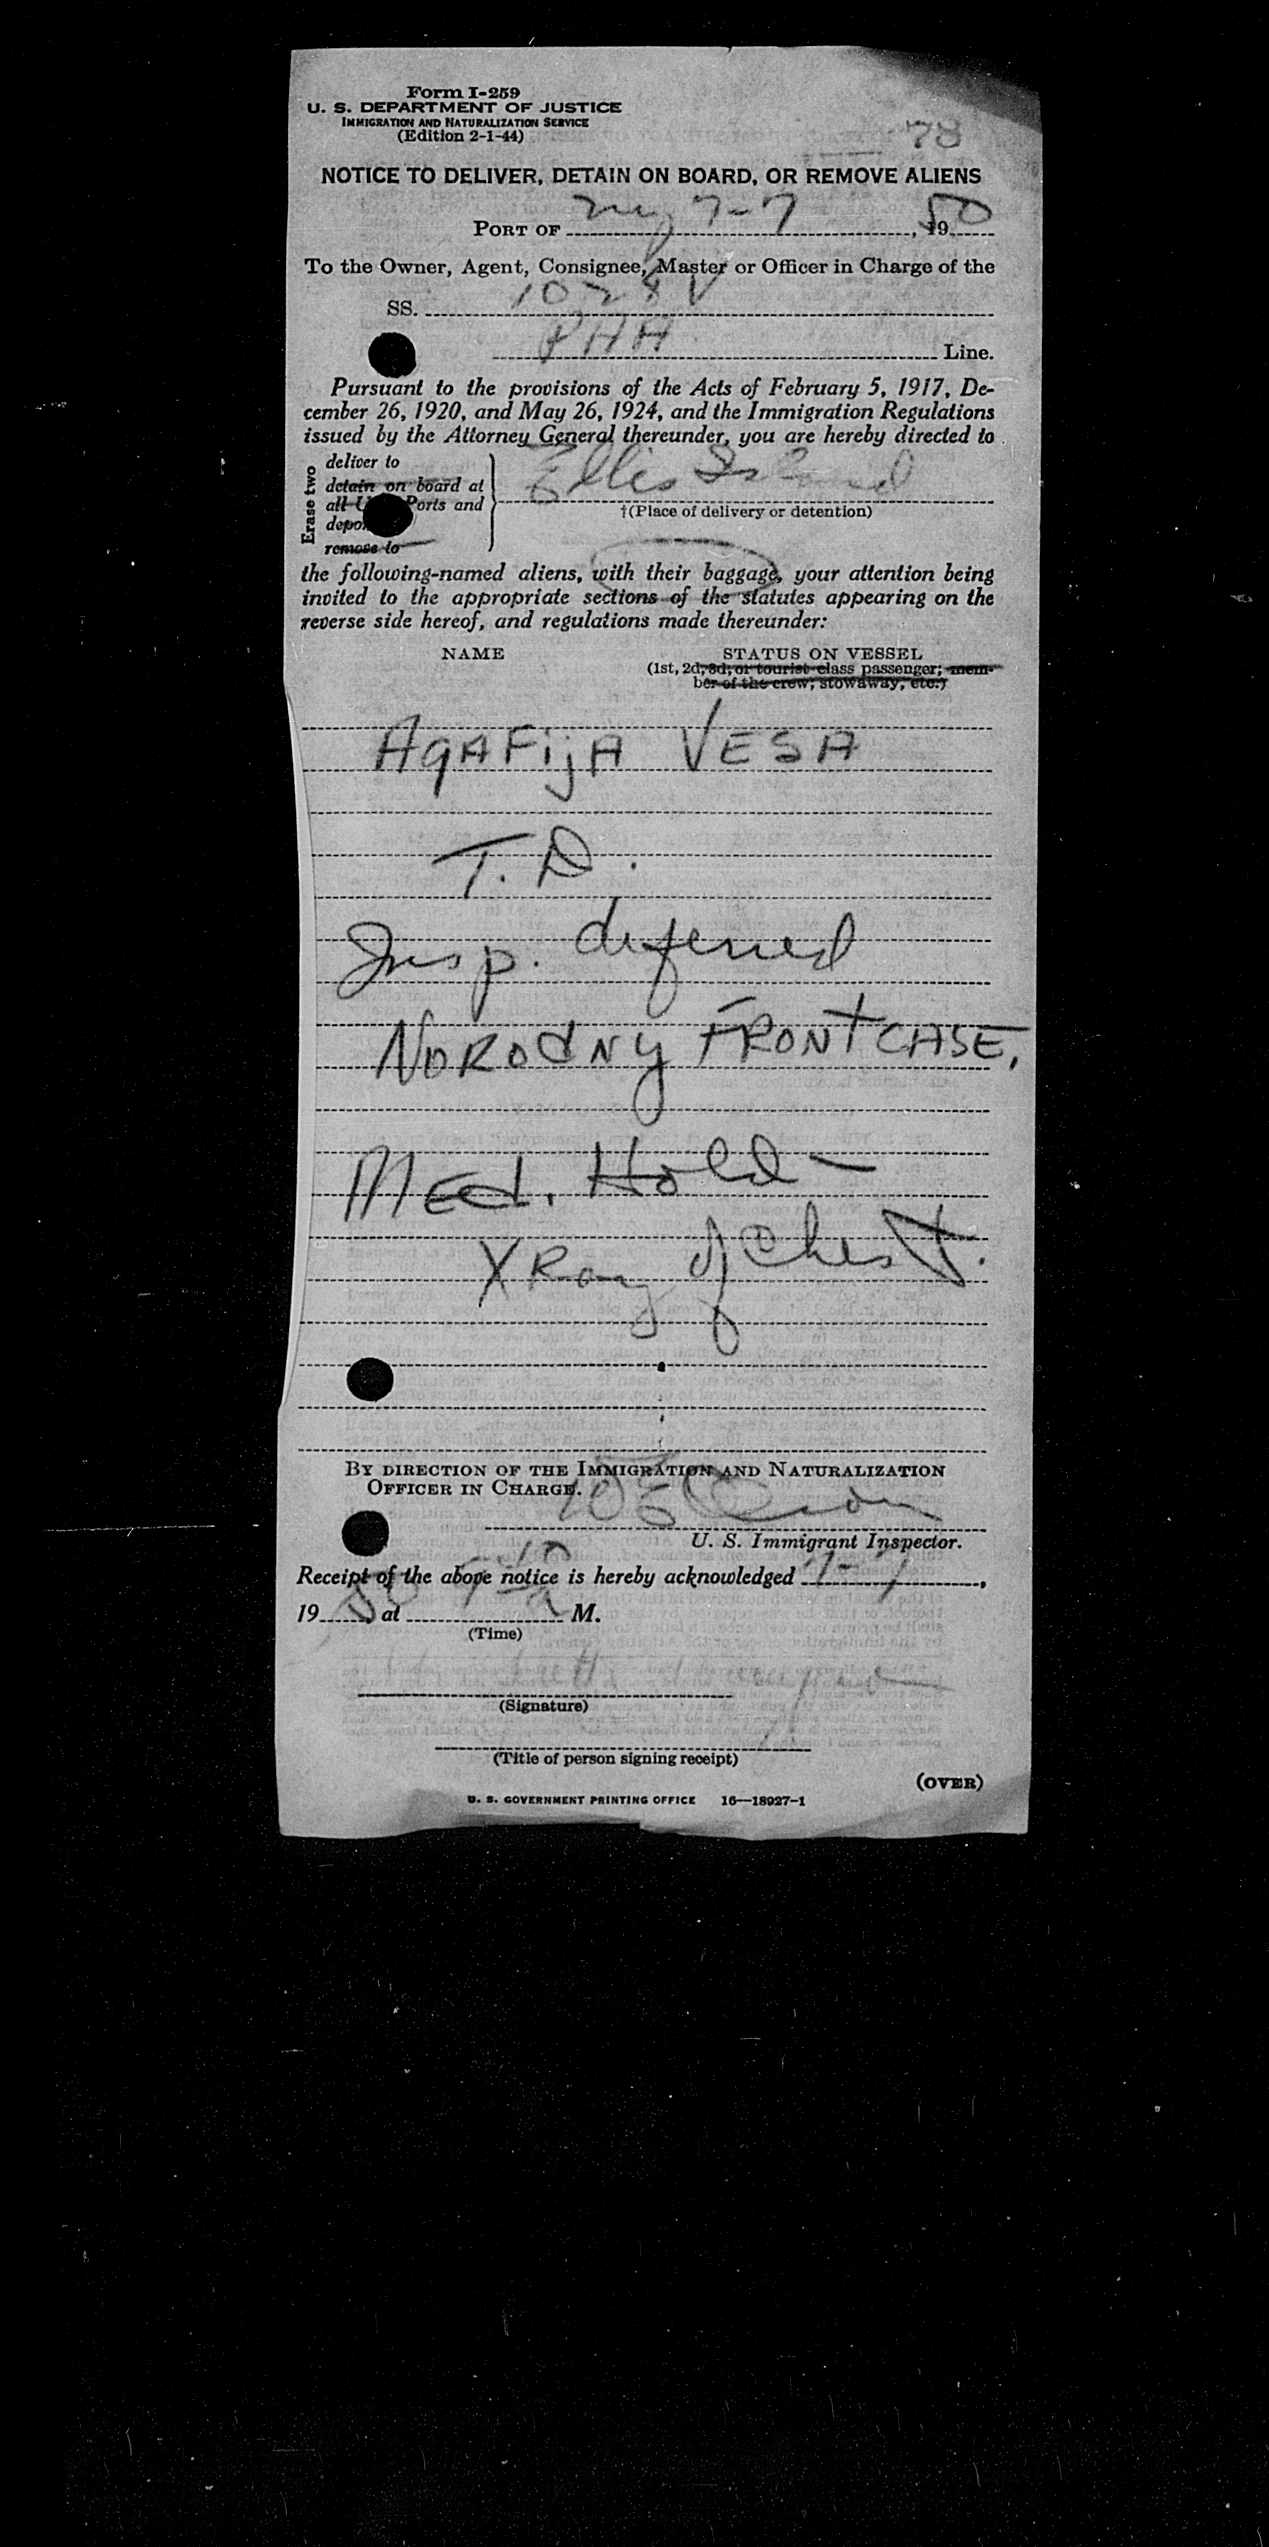 Form I-259
U. S. DEPARTMENT OF JUSTICE
IMMIGRATION AND NATURALIZATION SERVICE
(Edition 2-1-44)
78
NOTICE TO DELIVER, DETAIN ON BOARD, OR REMOVE ALIENS
PORT OF NY 7-7, 1950
To the Owner, Agent, Consignee, Master or Officer in Charge of the
SS. 1028 V
PAA Line.
Pursuant to the provisions of the Acts of February 5, 1917, De-
cember 26, 1920, and May 26, 1924, and the Immigration Regulations
issued by the Attorney General thereunder, you are hereby directed to
Erase two
deliver to
detain on board at
all U Ports and
depo
remove to
Ellis Island
†(Place of delivery or detention)
the following-named aliens, with their baggage, your attention being
invited to the appropriate sections of the statutes appearing on the
reverse side hereof, and regulations made thereunder:
NAME STATUS ON VESSEL
(1st, 2d, 3d, or tourist class passenger; mem-
ber of the crew; stowaway, etc.)
AgAFijA VESA
T. D.
Insp. deferred
NOROdNy FRONT CASE.
MEd. Hold —
X Ray of Chest.
BY DIRECTION OF THE IMMIGRATION AND NATURALIZATION
OFFICER IN CHARGE.
U. S. Immigrant Inspector.
Receipt of the above notice is hereby acknowledged 7-7,
1950 at M.
(Time)
(Signature)
(Title of person signing receipt)
(OVER)
U. S. GOVERNMENT PRINTING OFFICE 16—18927-1